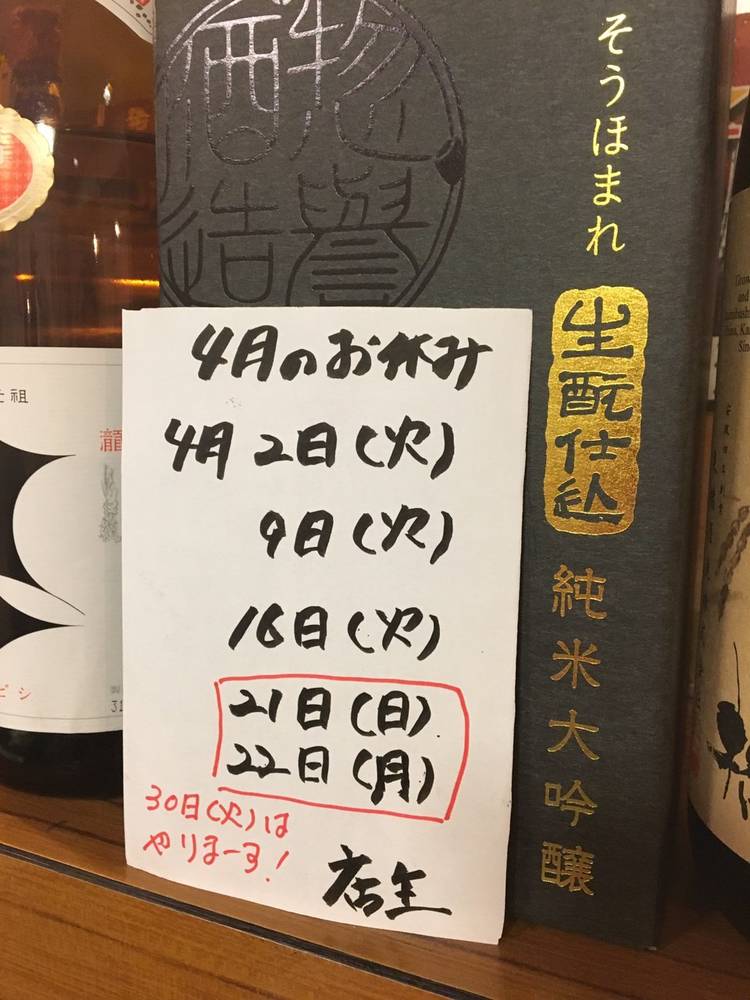 惣誉
酒造
そうほまれ
生酛仕込
純米大吟醸
4月のお休み
4月2日(火)
9日(火)
16日(火)
21日(日)
22日(月)
30日(火)は
やりまーす!
店主